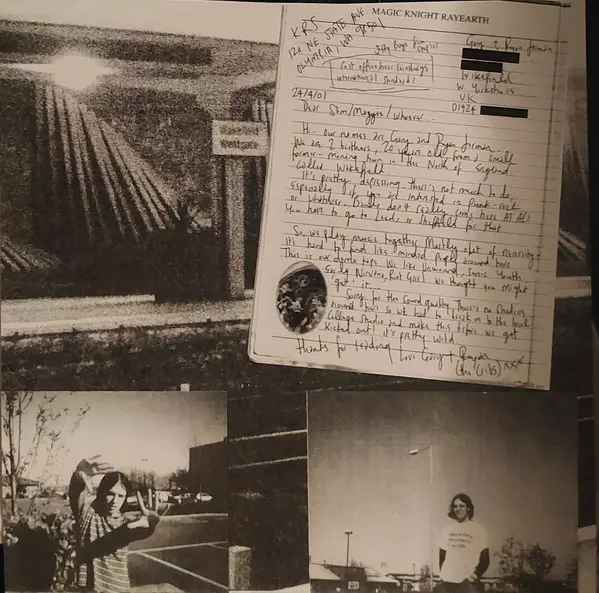 MAGIC KNIGHT RAYEARTH
KRS
120 NE STATE AVE
OLYMPIA, WA 98501
Gary + Ryan Jarman
Wakefield
W. Yorkshire
UK
01924
24/4/01
Dear Slim/Maggie/whoever...
Hi - Our names are Gary and Ryan Jarman
We are 2 brothers, 20 years old from a small
former-mining town in the North of England
called Wakefield
It's pretty depressing there's not much to do,
especially if you are interested in Punk-rock
or whatever. Bands don't really come here AT ALL
you have to go to Leeds or Sheffield for that
So, we play music together. Mostly out of necessity -
it's hard to find like-minded people around here
This is our demo tape. We like Unwound, Sonic Youth
Early Nirvana, Riot Grrl we thought you might
"get" it.
Sorry for the sound quality. There's no studios
around here so we had to break in to the local
College Studio and make this before we got
kicked out! it's pretty wild
thanks for reading Love Gary + Ryan